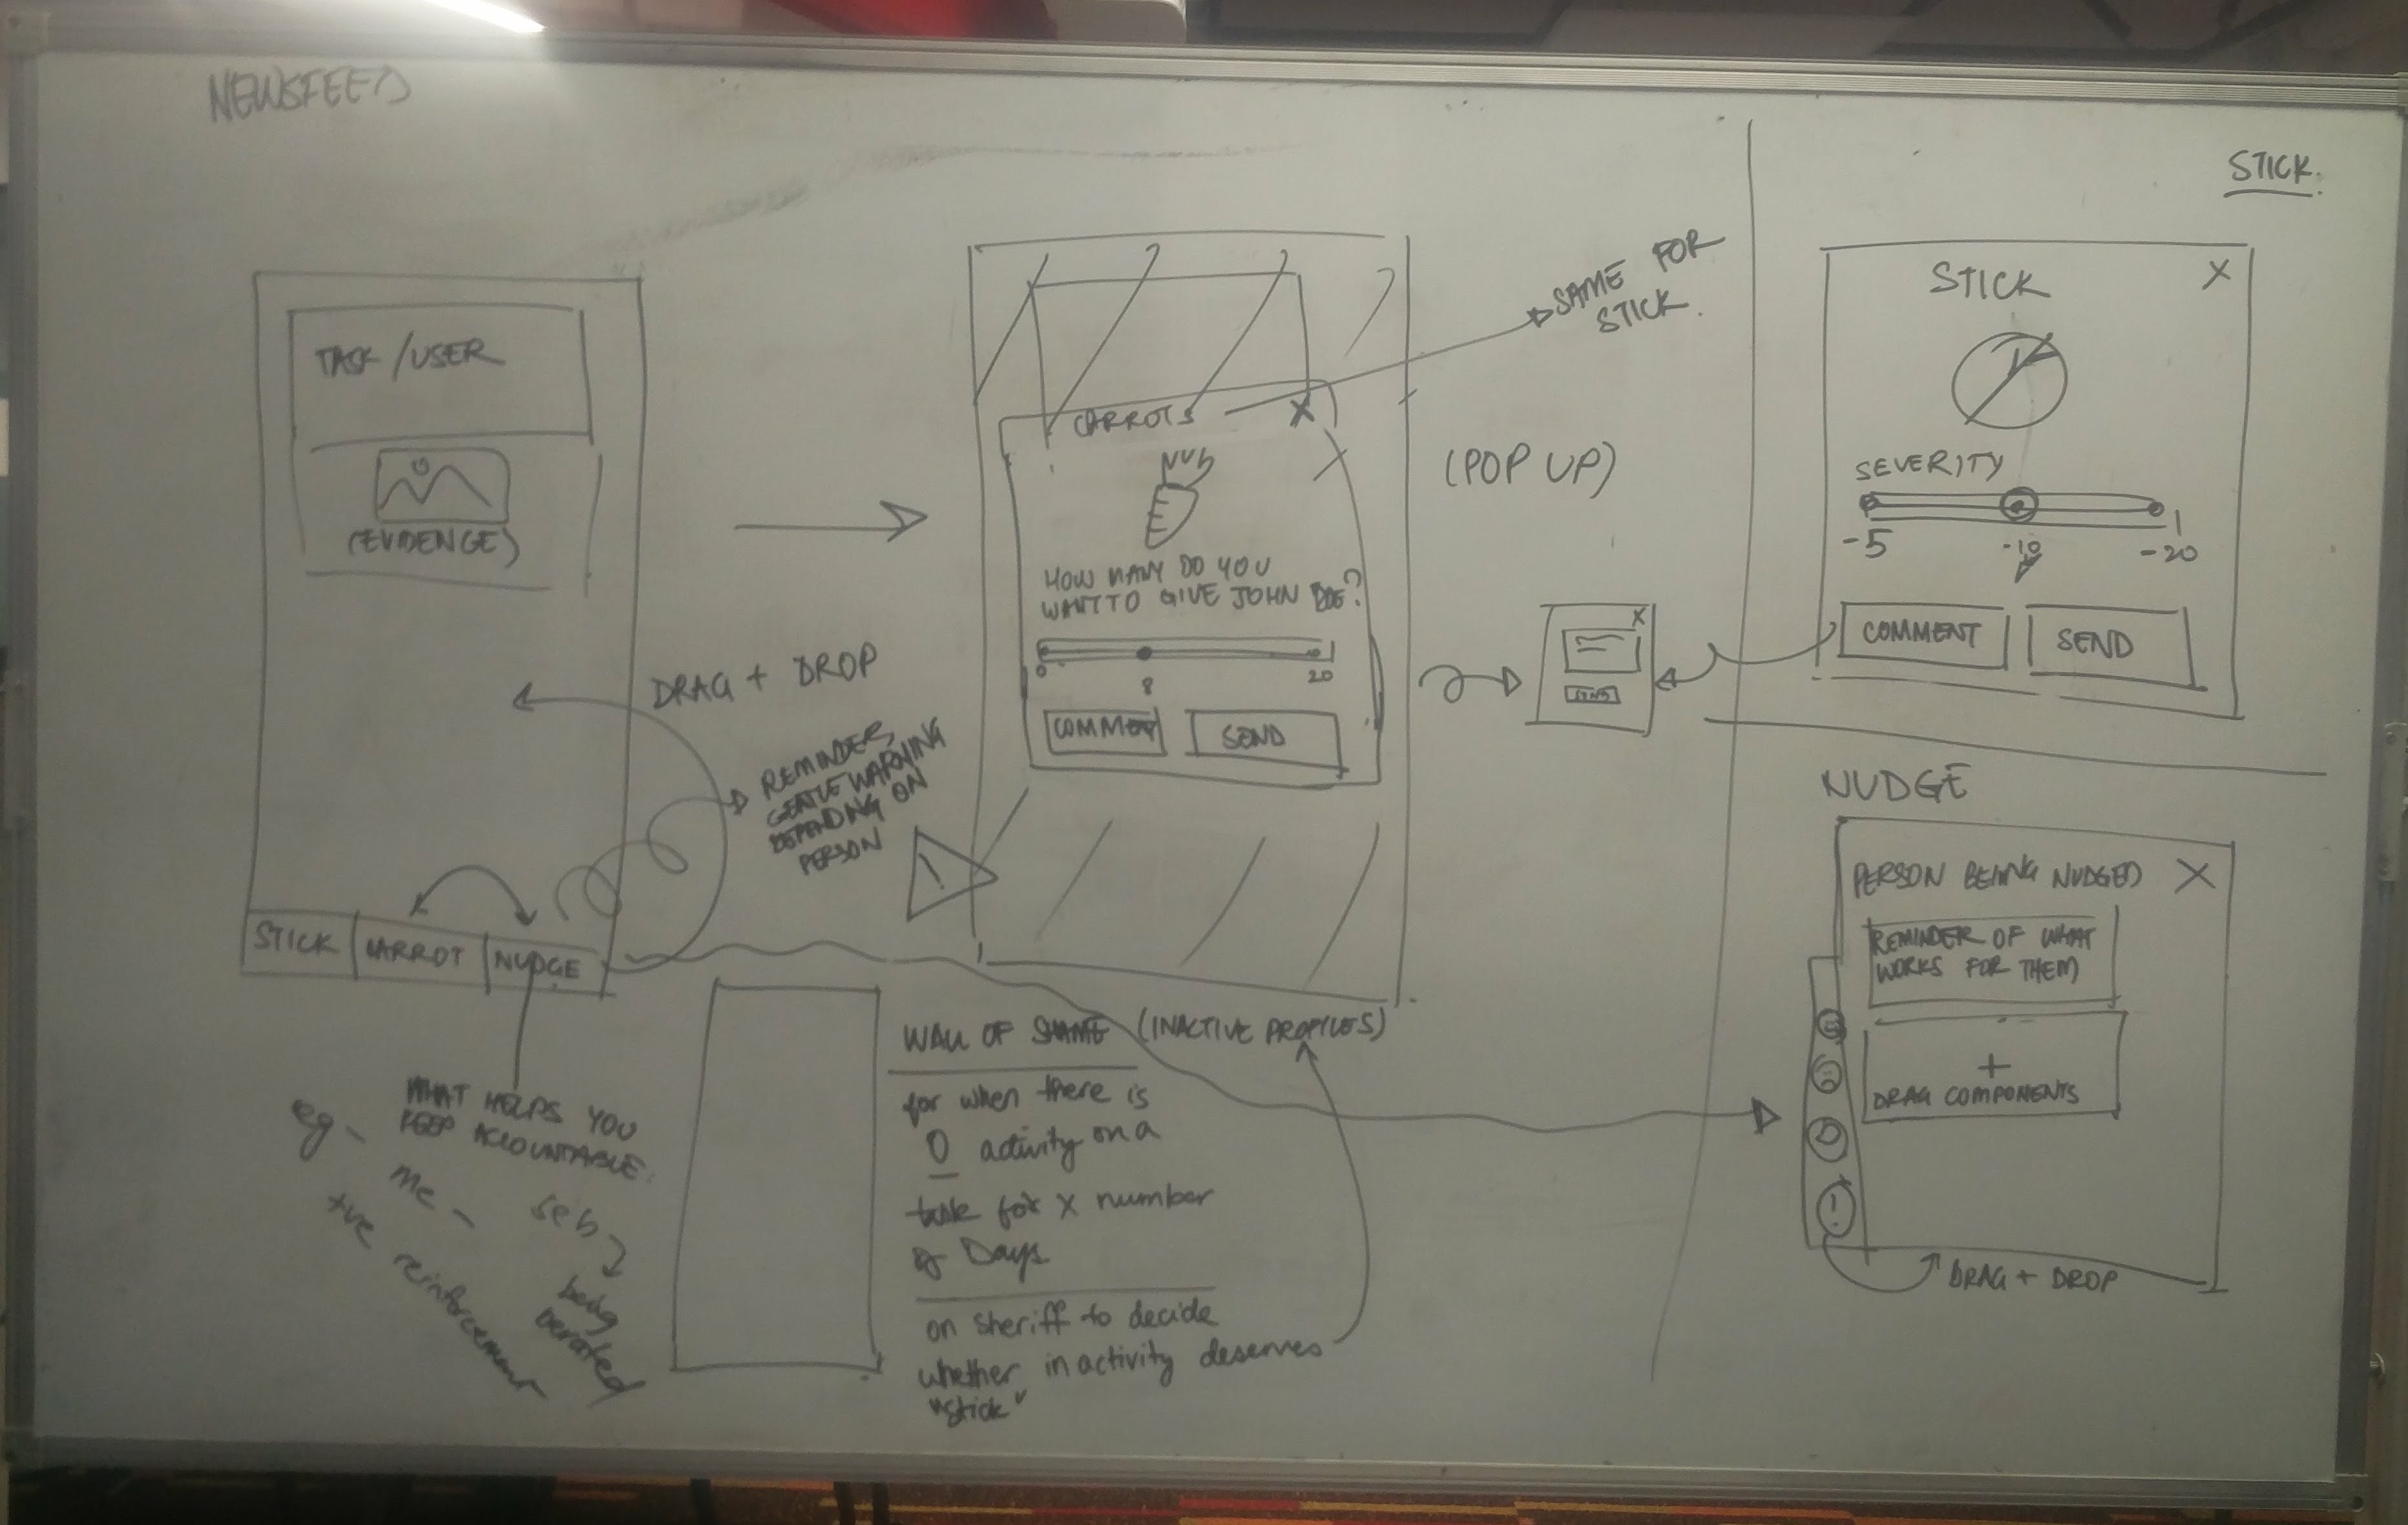 NEWSFEED
TASK/USER
(EVIDENCE)
DRAG + DROP
REMINDER,
GENTLE WARNING
DEPENDING ON
PERSON
!
STICK
CARROT
NUDGE
WHAT HELPS YOU
KEEP ACCOUNTABLE:
eg - me -
+ve reinforcement
seb
being
berated
CARROTS X
HOW MANY DO YOU
WANT TO GIVE JOHN DOE?
0 8 20
COMMENT
SEND
SAME FOR
STICK.
(POP UP)
X
SEND
WALL OF SHAME (INACTIVE PROFILES)
for when there is
0 activity on a
task for X number
of Days
on sheriff to decide
whether inactivity deserves
"stick"
STICK.
STICK X
SEVERITY
-5 -10 -20
COMMENT
SEND
NUDGE
PERSON BEING NUDGED X
REMINDER OF WHAT
WORKS FOR THEM
+
DRAG COMPONENTS
!
DRAG + DROP